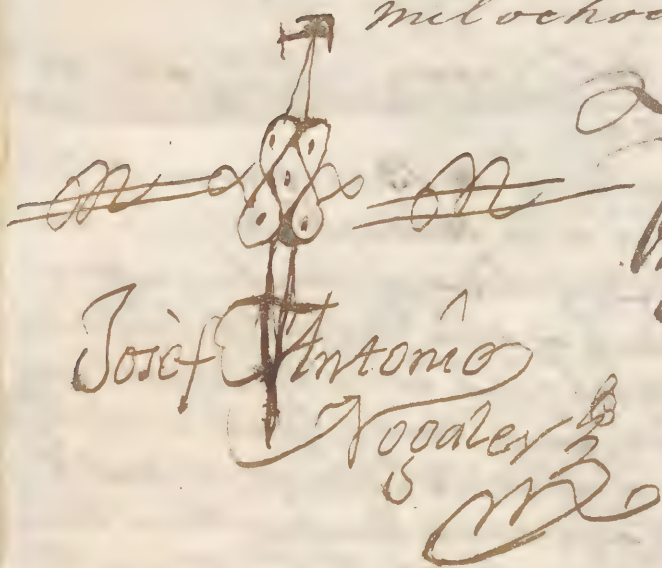 mil ochoc
Josèf Antonio
Nogales